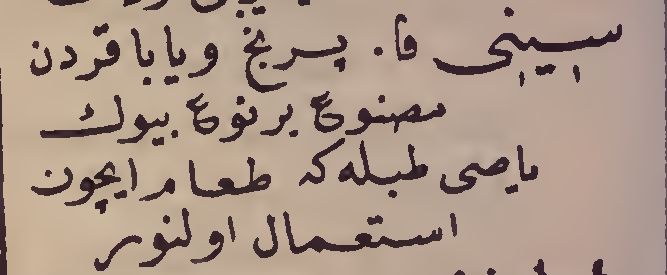 سینی فا. پرنج ویا باقردن
مصنوع بر نوع بیوك
یاصی طبله که طعام ایچون
استعمال اولنور